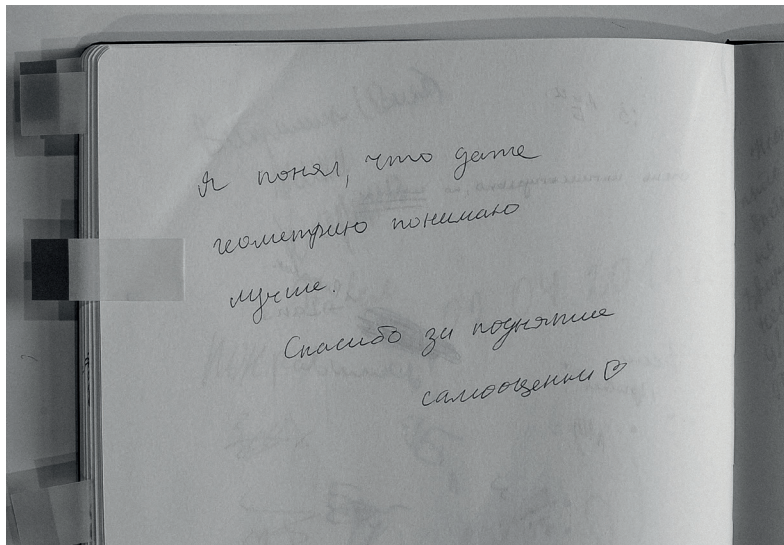 Я понял, что даже
геометрию понимаю
лучше.
Спасибо за поднятие
самооценки ♡